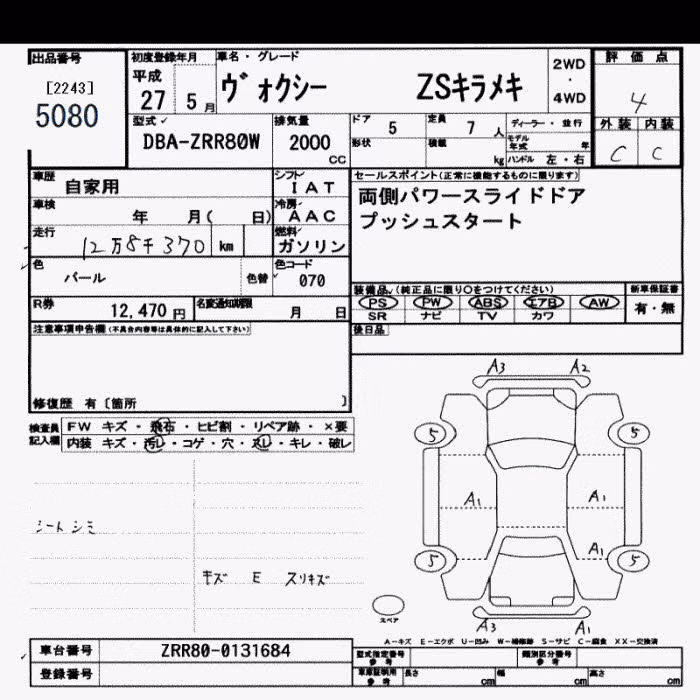 出品番号 初度登録年月 車名・グレード 評価点
[2243] 平成 2WD
5080 27 5月 ヴォクシー ZSキラメキ ・ 4
4WD
型式 排気量 ドア 5 定員 7人 ディーラー・並行 外装 内装
DBA-ZRR80W 2000 CC 形状 積載 kg モデル年式 年 C C
ハンドル 左・右
車歴 自家用 シフト IAT セールスポイント(正常に機能するものに限ります)
車検 年 月( 日) 冷房 AAC 両側パワースライドドア
走行 12万8千370 km 燃料 ガソリン プッシュスタート
色 パール 色替 色コード 070
装備品(純正品に限り○をつけてください) 新車保証書
R券 12,470円 名変通知期限 月 日 PS PW ABS エアB AW 有・無
SR ナビ TV カワ
注意事項申告欄(不具合内容等は具体的に記入して下さい) 後日品
修復歴 有〔箇所 〕
検査員記入欄 FW キズ・飛石・ヒビ割・リペア跡・×要
内装 キズ・汚レ・コゲ・穴・スレ・キレ・破レ
A3 A2
5 5
A1 A1
A1
5 5
シートシミ
キズ E スリキズ
スペア
A3 A1
A-キズ E-エクボ U-凹み W-補修跡 S-サビ C-腐食 XX-交換済
車台番号 ZRR80-0131684 型式指定番号 参考 類別区分番号 参考
登録番号 車庫証明用 参考 長さ cm 幅 cm 高さ cm